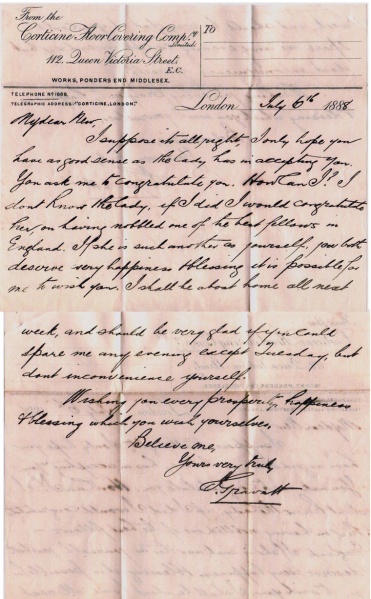 From the
Corticine Floor Covering Comp.y
Limited.
112, Queen Victoria Street,
E.C.
WORKS, PONDERS END MIDDLESEX.
To
TELEPHONE No 1888.
TELEGRAPHIC ADDRESS: "CORTICINE, LONDON."
London July 6th 1888
My dear
I suppose its all right, I only hope you
have as good sense as the lady has in accepting you.
You ask me to congratulate you. How Can I? I
dont Know the lady, if I did I would congratulate
her, on having nobbled one of the best fellows in
England. If she is such another as yourself, you both
deserve very happiness & blessing it is possible for
me to wish you. I shall be about home all next
week, and should be very glad if you could
spare me any evening except Tuesday, but
dont inconvenience yourself.
Wishing you every prosperity, happiness
& blessing which you wish yourselves,
Believe me,
Yours very truly